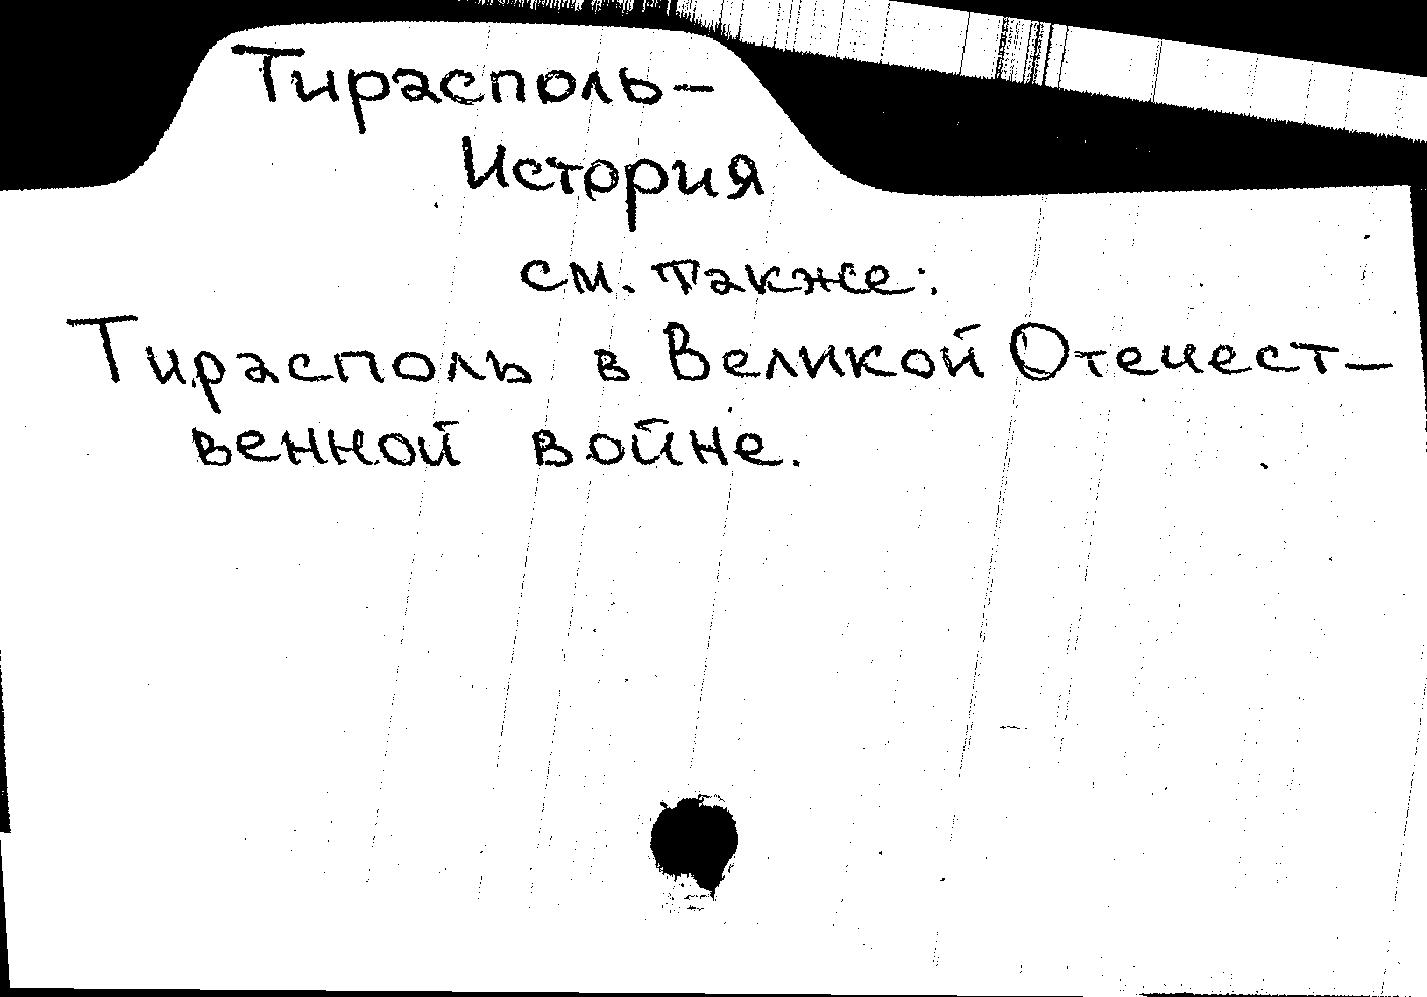 Тирасполь-
История
см. также:
Тирасполь в Великой Отечест-
венной войне.